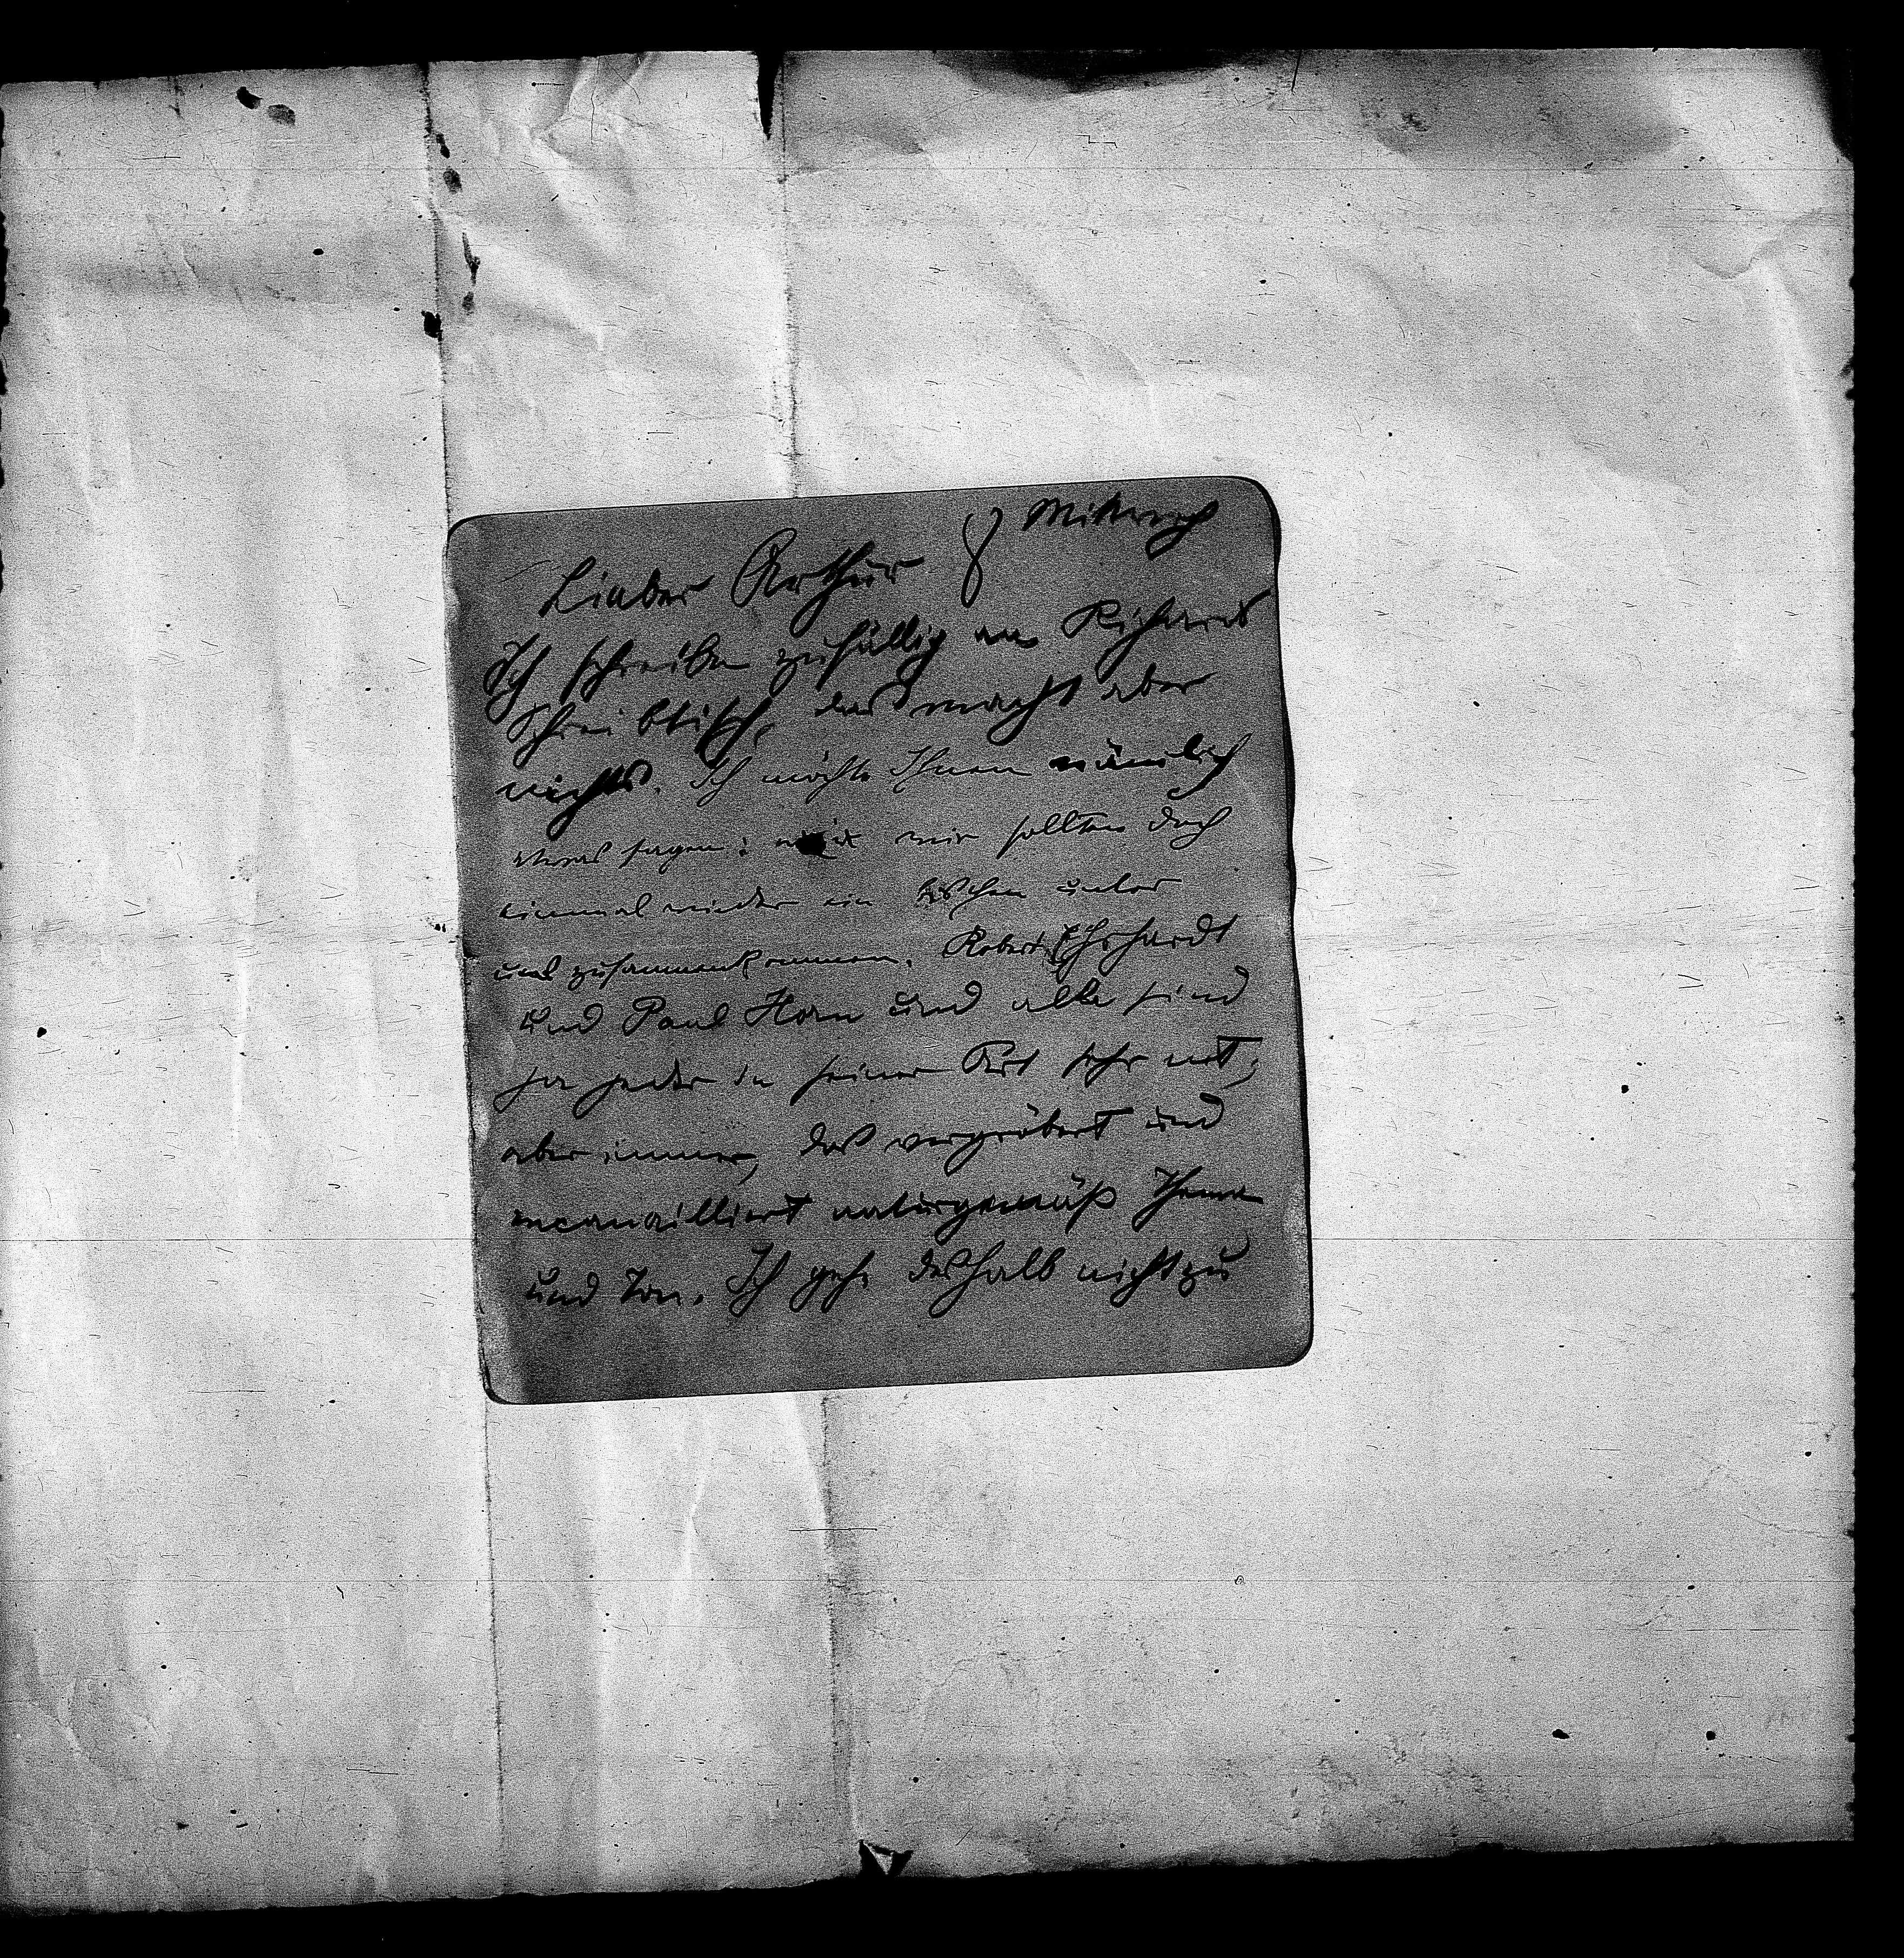 8 Mittwoch
Lieber Arthur
Ich schreibe zufällig an Richards
Schreibtisch, das macht aber
nichts. Ich möchte Ihnen nämlich
etwas sagen: wir sollten doch
einmal wieder ein bischen unter
uns zusammenkommen. Robert Ehrhardt
und Paul Horn und alle sind
ja jeder in seiner Art sehr nett;
aber immer, das vergröbert und
encanailliert naturgemäß Thema
und Ton. Ich gehe deshalb nicht zu